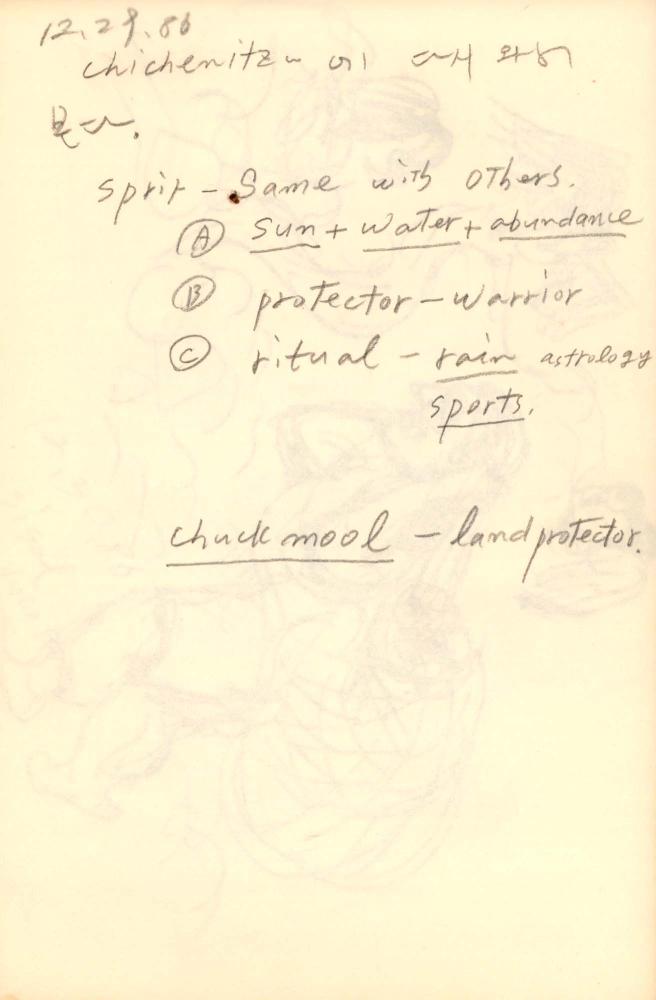 12.29.86
chichenitza 에 다시 와서
본다.
sprit – Same with others.
Ⓐ sun + water + abundance
Ⓑ protector – warrior
Ⓒ ritual – rain astrology
sports.
chuck mool – land protector.